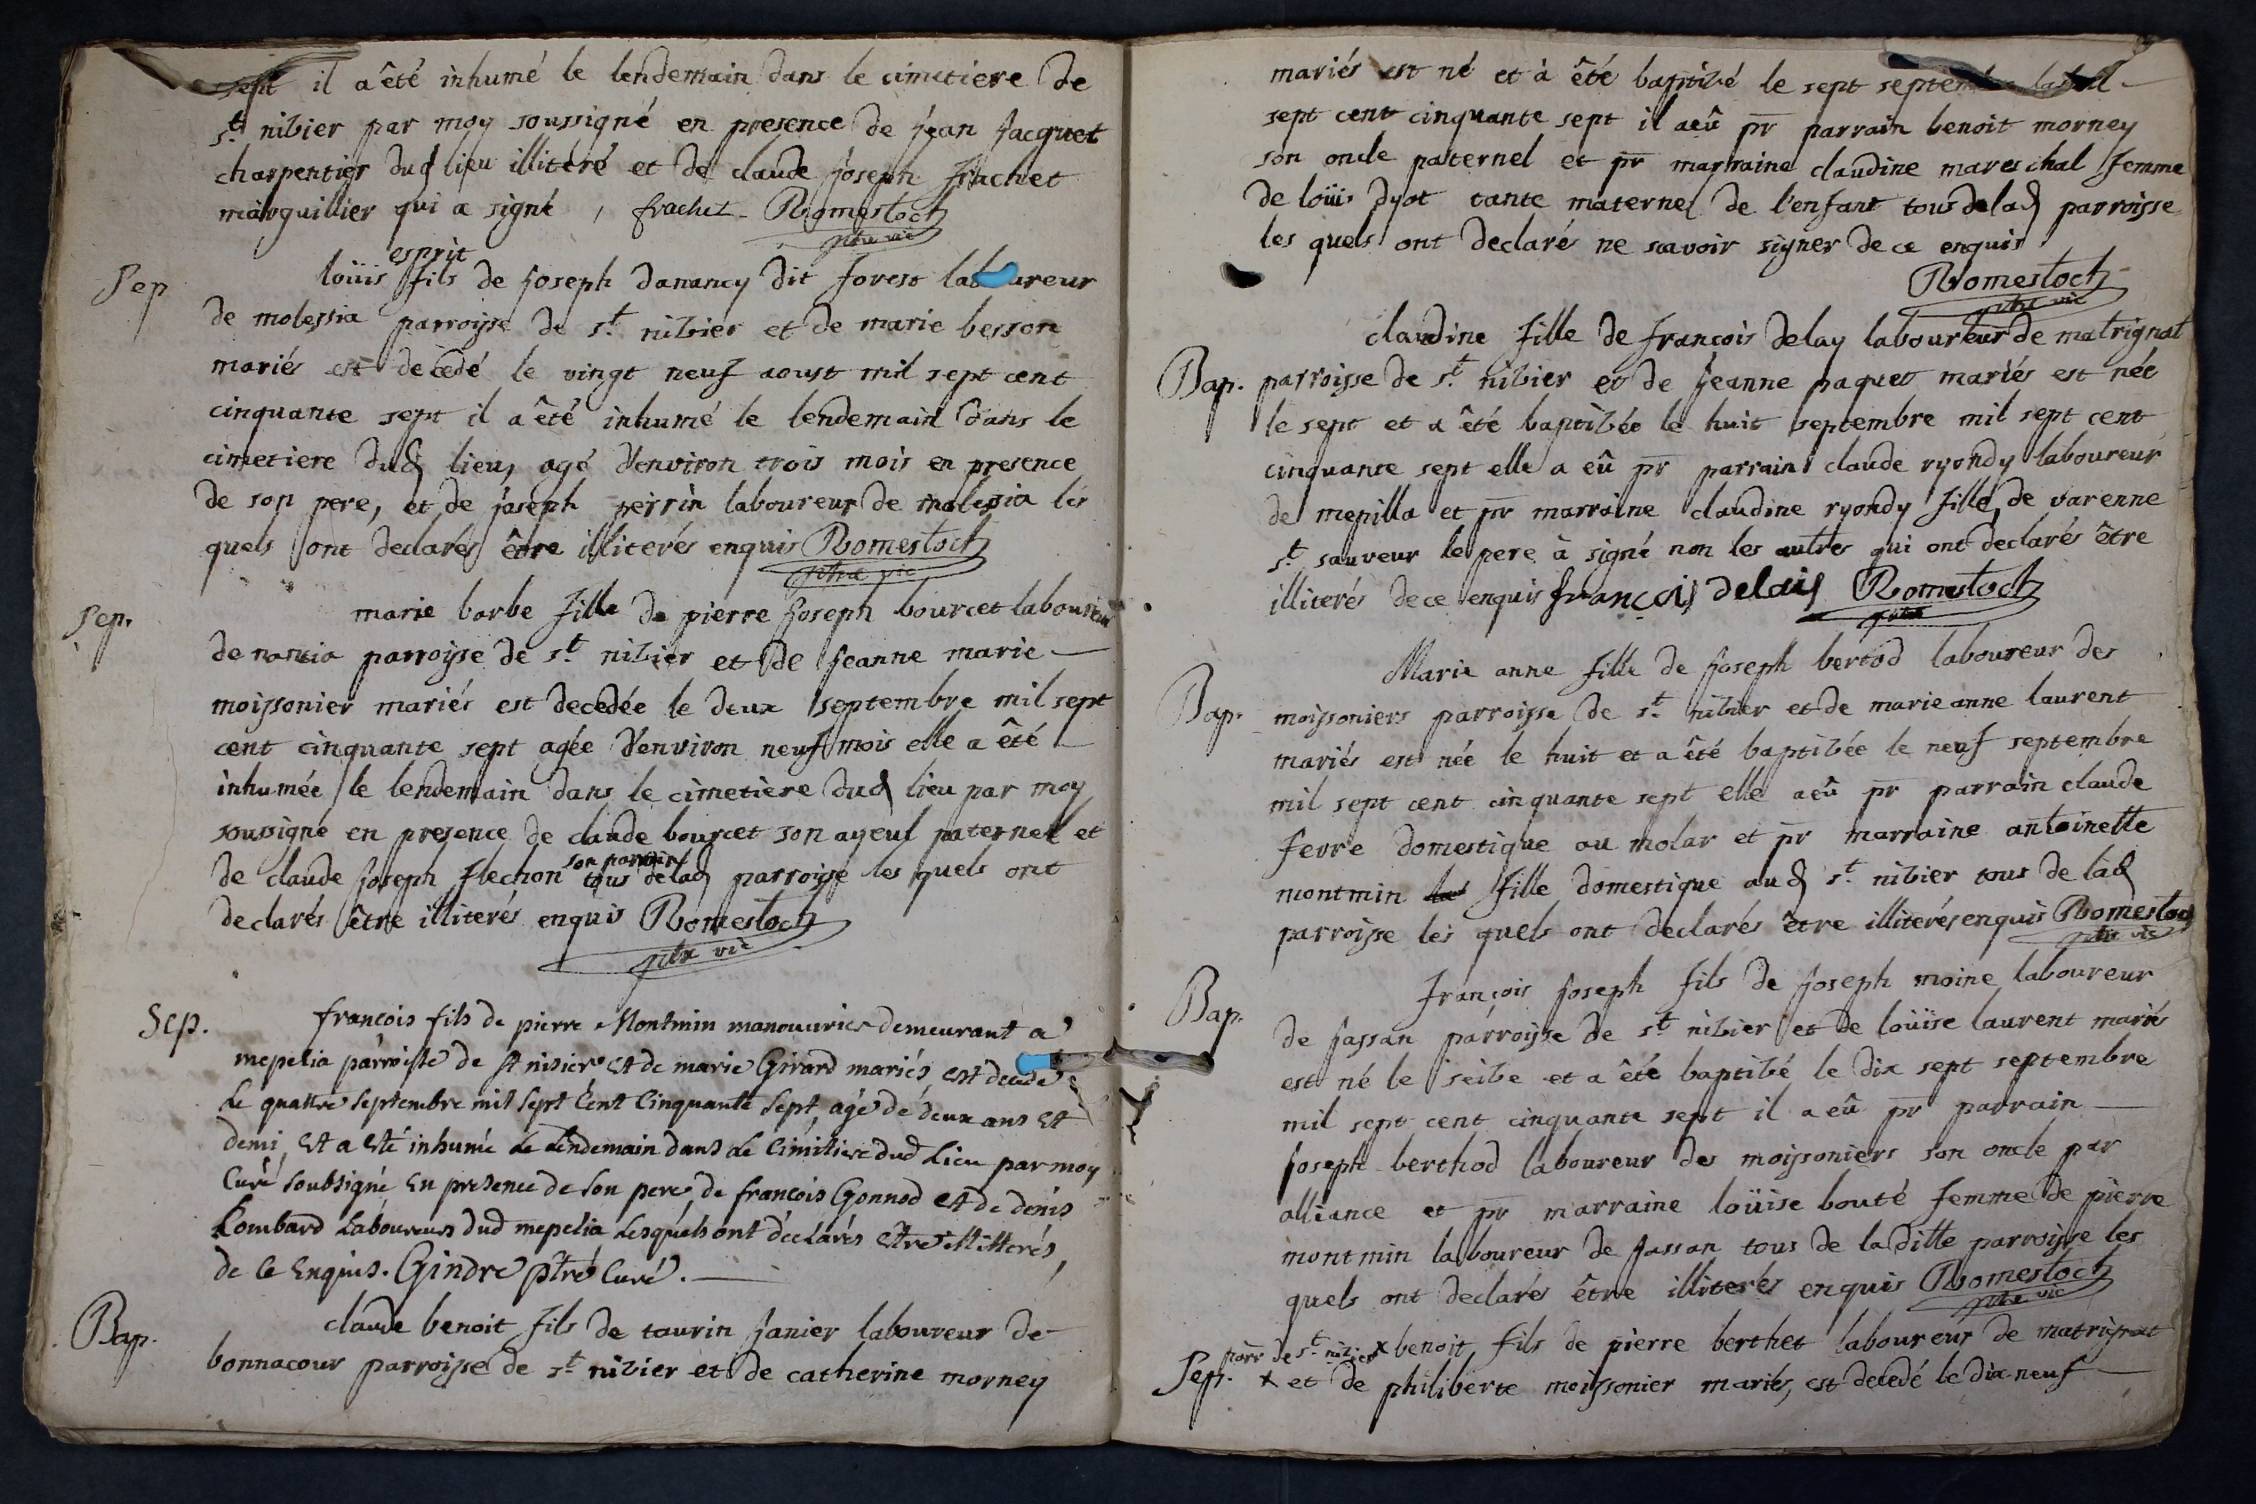 sept il a êté inhumé le lendemain dans le cimetiere de
st. nizier par moy soussigné en presence de jean jacquet
charpentier dud lieu illiteré et de claude joseph frachet
marguillier qui a signé, frachet Romestoch
ptre vic
esprit
Sep
loüis fils de joseph danancy dit forest laboureur
de molessia parroisse de st. nizier et de marie besson
mariés est décédé le vingt neuf aoust mil sept cent
cinquante sept il a êté inhumé le lendemain dans le
cimetiere dud lieu, agé d'environ trois mois en presence
de son pere, et de joseph perrin laboureur de molessia les
quels ont declarés être illiterés enquis Romestoch
ptre vic
Sep.
marie barbe fille de pierre joseph bourcet laboureur
de nantia parroisse de st. nizier et de jeanne marie
moissonier mariés est decedée le deux septembre mil sept
cent cinquante sept agée d'environ neuf mois elle a êté
inhumée le lendemain dans le cimetière dud lieu par moy
soussigné en presence de claude bourcet son ayeul paternel et
son parrain
de claude joseph flechon tous de lad parroisse les quels ont
declarés être illiterés enquis Romestoch
ptre vic
Sep.
francois fils de pierre Montmin manouvrier demeurant a
mepelia parroisse de st nisier et de marie Girard mariés, est decedé
Le quattre septembre mil sept cent cinquante sept, agé de deux ans et
demi, et a esté inhumé le lendemain dans le cimitiere dud Lieu par moy
Curé soubsigné en presence de son pere, de francois Gonnod et de denis
Lombard Laboureurs dud mepelia Lesquels ont déclarés etre illitterés,
de ce enquis. Gindre ptre curé.
Bap.
claude benoit fils de taurin janier laboureur de
bonnacour parroisse de st. nizier et de catherine morney
mariés est né et à êté baptizé le sept septembre mil
sept cent cinquante sept il a eû pr parrain benoit morney
son oncle paternel et pr marraine claudine mareschal femme
de loüis dyot tante maternel de l'enfant tous de lad parroisse
les quels ont declaré ne scavoir signer de ce enquis
Romestoch
ptre vic
claudine fille de francois delay laboureur de matrignat
Bap.
parroisse de st. nizier et de jeanne paquet mariés est née
le sept et a êté baptizée le huit septembre mil sept cent
cinquante sept elle a eû pr parrain claude ryondy laboureur
de mepilla et pr marraine claudine ryondy fille, de varenne
st. sauveur le pere à signé non les autres qui ont déclarés être
illiterés de ce enquis françois delais Romestoch
ptre
Marie anne fille de joseph bertod laboureur des
Bap.
moissoniers parroisse de st. nizier et de marie anne laurent
mariés est née le huit et a êté baptizée le neuf septembre
mil sept cent cinquante sept elle a eû pr parrain claude
fevre domestique au molar et pr marraine antoinette
montmin fille domestique aud st. nizier tous de lad
parroisse les quels ont declarés être illiterés enquis Romestoch
ptre vic
Bap.
françois joseph fils de joseph moine laboureur
de jassan parroisse de st. nizier et de loüise laurent mariés
est né le seize et a êté baptizé le dix sept septembre
mil sept cent cinquante sept il a eû pr parrain
joseph berthod laboureur des moissoniers son oncle par
alliance et pr marraine loüise bouté femme de pierre
montmin laboureur de jassan tous de la ditte parroisse les
quels ont declarés être illiterés enquis Romestoch
ptre vic
parr de st. nizier x benoit, fils de pierre berthet laboureur de matrignat
Sep.
x et de philiberte moissonier mariés, est decedé le dix neuf